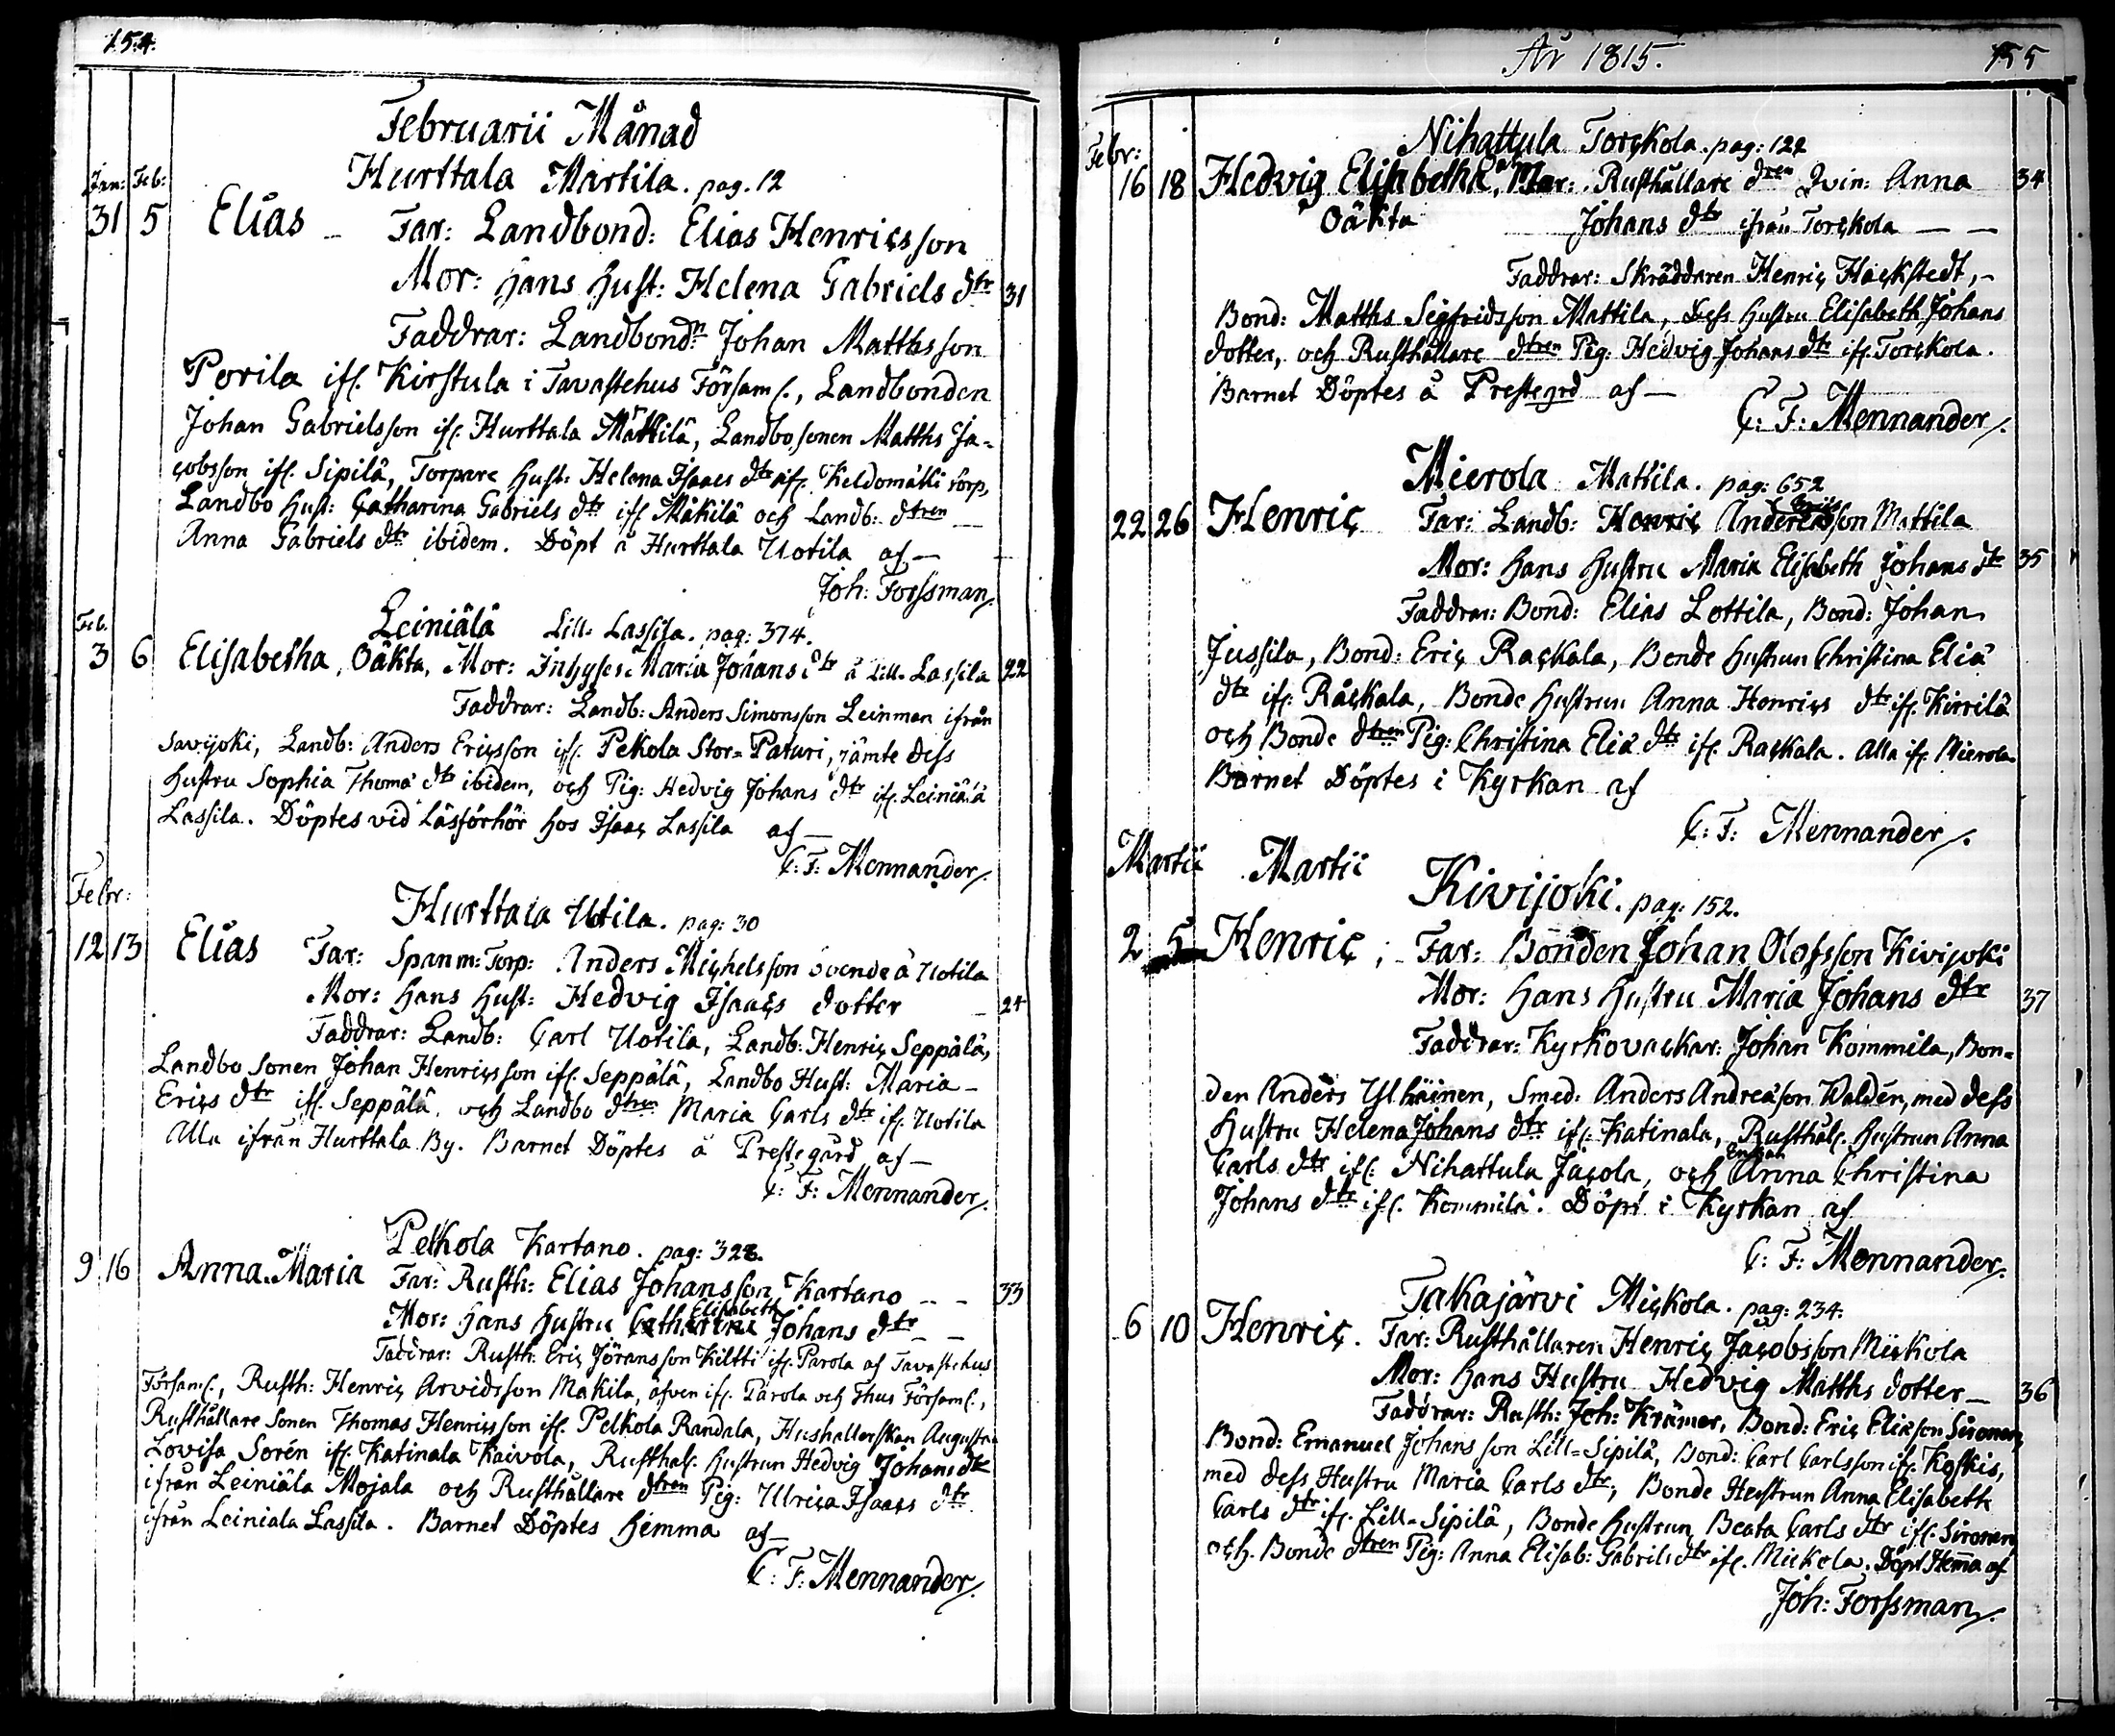 154.
Februarii Månad
Hurttala Martila. pag. 12
Jan: Feb:
31 5 Elias – Far: Landbond: Elias Henricsson
Mor: Hans Hust: Helena Gabriels dtr 31
Faddrar: Landbondn Johan Matthsson
Porila ifr. Kirstula i Tavastehus Församl., Landbonden
Johan Gabrielsson ifr. Hurttala Mäkkilä, Landbosonen Matths Ja-
cobsson ifr. Sipilä, Torpare Hust: Helena Isaacs dtr ifr. Keldomäki torp,
Landbo Hust: Catharina Gabriels dtr ifr Mäkilä och Landb: dtren
Anna Gabriels dtr ibidem. Döpt å Hurttala Uotila af –
Joh: Forssman
Feb.
Leiniälä Lill- Lassila. pag: 374.
3 6 Elisabetha, Oäkta, Mor: Inhyses: Maria Johans dtr å Lill- Lassila 22
Faddrar: Landb: Anders Simonsson Leinman ifrån
Savijoki, Landb: Anders Ericsson ifr. Pelkola Stor= Paturi, jämte dess
Hustru Sophia Thoma dtr ibidem, och Pig: Hedvig Johans dtr ifr. Leiniälä
Lassila. Döptes vid Läsförhör hos Isaac Lassila af –
C: F: Mennander
Febr:
Hurttala Uotila. pag: 30
12 13 Elias Far: Spanm: Torp: Anders Michelsson Svende å Uotila
Mor: Hans Hust: Hedvig Isaacs dotter – 24
Faddrar: Landb: Carl Uotila, Landb: Henric Seppälä,
Landbo Sonen Johan Henricsson ifr. Seppälä, Landbo Hust: Maria –
Erics dtr ifr. Seppälä, och Landbo dtren Maria Carls dtr ifr. Uotila
Alla ifrån Hurttala By. Barnet Döptes å Prestegård af –
C: F: Mennander
Pelkola Kartano. pag: 328.
9 16 Anna Maria Far: Rusth: Elias Johansson Kartano – – 33
Elisabeth
Mor: Hans Hustru Catharina Johans dtr – –
Faddrar: Rusth: Eric Jöransson Kiltti ifr. Parola af Tavastehus
Församl., Rusth: Henric Arvidsson Makila, äfven ifr. Parola och Thus Församl.,
Rusthållare Sonen Thomas Henricsson ifr. Pelkola Randala, Hushållerskan Augusta
Lovisa Sorén ifr. Katinala Kaivola, Rusthål. Hustrun Hedvig Johans dtr
ifrån Leiniäla Mojala och Rusthållare dtren Pig: Ulrica Isaacs dtr
ifrån Leiniala Lassila. Barnet Döptes Hemma af –
C: F: Mennander
År 1815. 155
Nihattula Torckola. pag: 122
Febr:
16 18 Hedvig Elisabetha, Mor: Rusthållare dtren Qvin: Anna 34
Oäkta Johans dtr ifrån Torckola – –
Faddrar: Skräddaren Henric Hackstedt, –
Bond: Matths Sigfridsson Mattila, dess Hustru Elisabeth Johans
dotter, och Rusthållare dtren Pig: Hedvig Johans dtr ifr. Torckola.
Barnet Döptes å Prestegrd af –
C: F: Mennander
Mierola Mattila. pag: 652
22 26 Henric Far: Landb: Henric Andersson Mattila
Mor: Hans Hustru Maria Elisabeth Johans dtr 35
Faddrar: Bond: Elias Lottila, Bond: Johan
Jussila, Bond: Eric Rackala, Bonde Hustrun Christina Eliä
dtr ifr. Råckala, Bonde Hustrun Anna Henrics dtr ifr. Kirrilä
och Bonde dtren Pig: Christina Eliä dtr ifr. Rackala. Alla ifr. Mierola
Barnet Döptes i Kyrkan af
C: F: Mennander
Martii Martii
Kivijoki. pag: 152.
2 5 Henric, Far: Bonden Johan Olofsson Kivijoki
Mor: Hans Hustru Maria Johans dtr 37
Faddrar: Kyrkovackar: Johan Kommila, Bon=
den Anders Ylhäinen, Smed: Anders Andreäson Waldén, med dess
Hustru Helena Johans dtr ifr. Katinala, Rusthål. Hustrun Anna
Carls dtr ifr. Nihattula Jacola, och Enkan Anna Christina
Johans dtr ifr. Kommila. Döpt i Kyrkan af
C: F: Mennander
Takajärvi Mickola. pag: 234.
6 10 Henric. Far: Rusthållaren Henric Jacobsson Mickola
Mor: Hans Hustru Hedvig Matths dotter – 36
Faddrar: Rusth: Joh: Krämer, Bond: Eric Eliæson Sironen,
Bond: Emanuel Johansson Lill=Sipilä, Bond: Carl Carlsson ifr. Koskis,
med dess Hustru Maria Carls dtr, Bonde Hustrun Anna Elisabeth
Carls dtr ifr. Lill=Sipilä, Bonde Hustrun Beata Carls dtr ifr. Sironen
och Bonde dtren Pig: Anna Elisab: Gabriels dtr ifr. Mickola. Döpt Hema af
Joh: Forssman